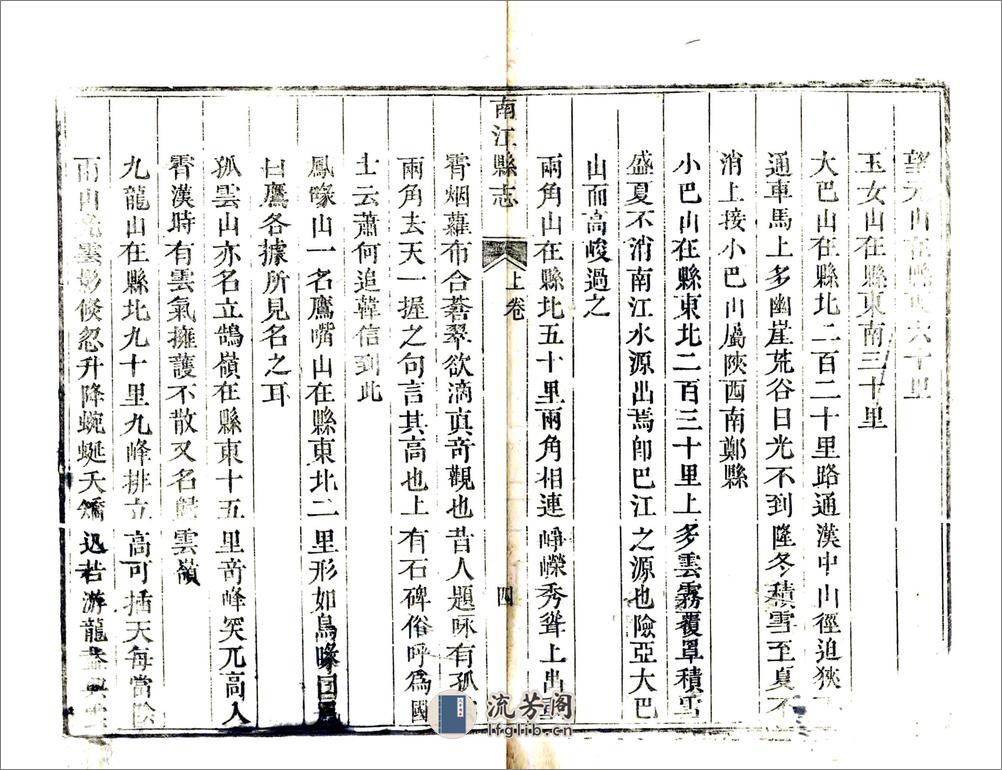 望天山在縣西六十里
玉女山在縣東南三十里
大巴山在縣北二百二十里路通漢中山徑迫狹
通車馬上多幽崖荒谷日光不到隆冬積雪至夏不
消上接小巴山屬陝西南鄭縣
小巴山在縣東北二百三十里上多雲霧覆罩積雪
盛夏不消南江水源出焉卽巴江之源也險亞大巴
山而高峻過之
兩角山在縣北五十里兩角相連崢嶸秀聳上出
南江縣志 上卷 四
霄烟蘿布合蒼翠欲滴真奇觀也昔人題咏有孤
兩角去天一握之句言其高也上有石碑俗呼爲國
士云蕭何追韓信到此
鳳喙山一名鷹嘴山在縣東北二里形如鳥喙曰鳳
曰鷹各據所見名之耳
孤雲山亦名立鵠嶺在縣東十五里奇峰突兀高入
霄漢時有雲氣擁護不散又名歸雲嶺
九龍山在縣北九十里九峰排立高可插天每當陰
雨山光雲影倏忽升降蜿蜒夭矯迅若游龍
流芳阁
lfglib.cn